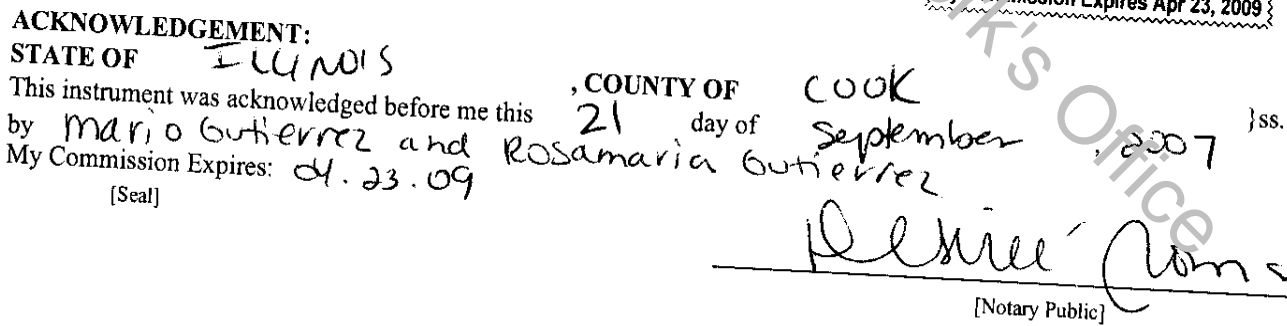 Expires Apr 23, 2009
ACKNOWLEDGEMENT:
STATE OF ILLINOIS , COUNTY OF COOK }ss.
This instrument was acknowledged before me this 21 day of September , 2007
by Mario Gutierrez and Rosamaria Gutierrez
My Commission Expires: 04.23.09
[Seal]
[Notary Public]
rk's Office